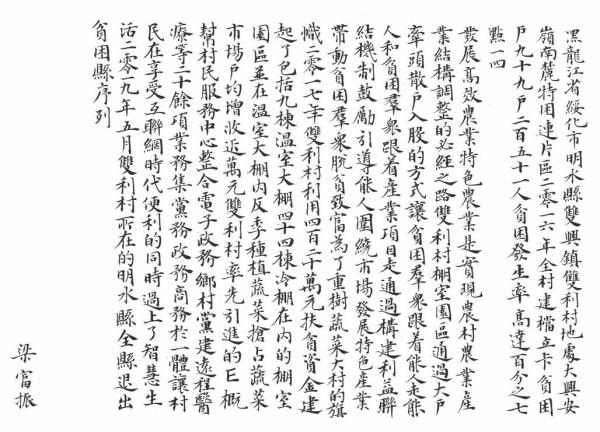 黑龍江省綏化市明水縣雙興鎮雙利村地處大興安
嶺南麓特困連片區二零一六年全村建檔立卡貧困
戶九十九戶二百五十一人貧困發生率高達百分之七
點一四
發展高效農業特色農業是實現農村農業產
業結構調整的必經之路雙利村棚室園區通過大戶
牽頭散戶入股的方式讓貧困羣衆跟着能人走能
人和貧困羣衆跟着產業項目走通過構建利益聯
結機制鼓勵引導能人圍繞市場發展特色產業
帶動貧困羣衆脫貧致富為了重樹蔬菜大村的旗
幟二零一七年雙利村利用四百二十萬元扶貧資金建
起了包括九棟溫室大棚四十四棟冷棚在內的棚室
園區並在溫室大棚內反季種植蔬菜搶占蔬菜
市場戶均增收近萬元雙利村率先引進的E概
幫村民服務中心整合電子政務鄉村黨建遠程醫
療等二十餘項業務集黨務政務商務於一體讓村
民在享受互聯網時代便利的同時過上了智慧生
活二零一九年五月雙利村所在的明水縣全縣退出
貧困縣序列
梁富振